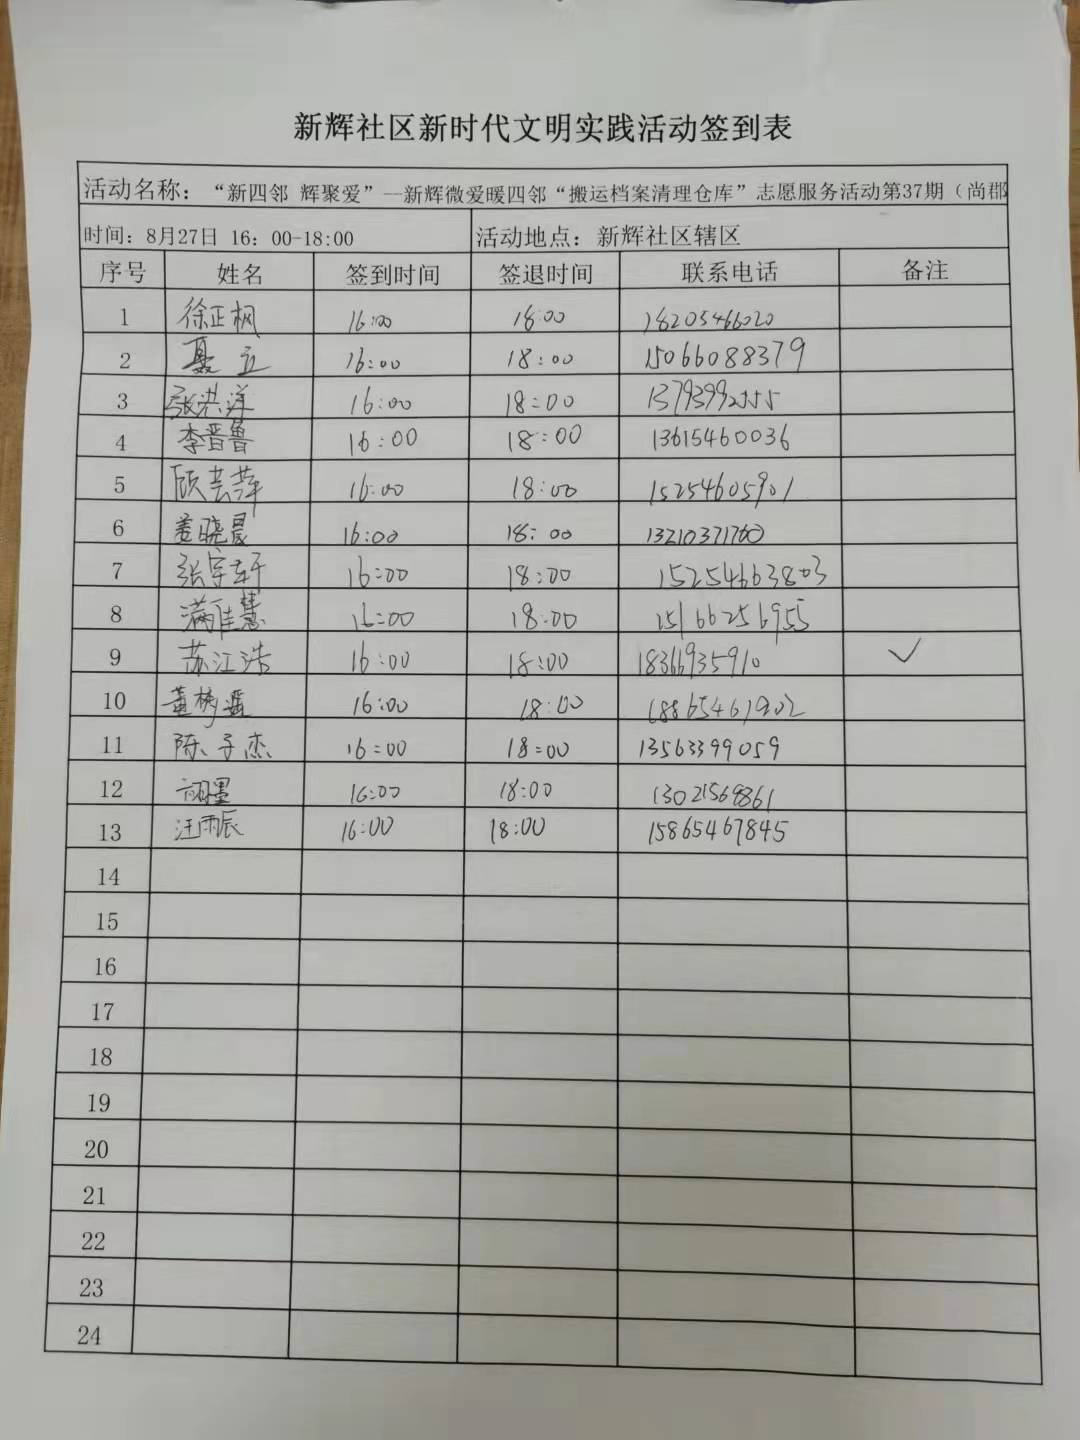 新辉社区新时代文明实践活动签到表
活动名称：“新四邻 辉聚爱”--新辉微爱暖四邻“搬运档案清理仓库”志愿服务活动第37期（尚郡
时间：8月27日 16：00-18:00 活动地点：新辉社区辖区
序号 姓名 签到时间 签退时间 联系电话 备注
1 徐正枫 16:00 18:00 18205466020
2 聂立 16:00 18:00 15066088379
3 张洪洋 16:00 18:00 13793992555
4 李晋鲁 16:00 18:00 13615460036
5 顾芸萍 16:00 18:00 15254605901
6 姜晓晨 16:00 18:00 13210371760
7 张宇轩 16:00 18:00 15254663803
8 满佳慧 16:00 18:00 15166256955
9 苏江浩 16:00 18:00 18366935910 ✓
10 董梦遥 16:00 18:00 18865461902
11 陈子杰 16:00 18:00 13563399059
12 16:00 18:00 13021568861
13 汪雨辰 16:00 18:00 15865467845
14
15
16
17
18
19
20
21
22
23
24